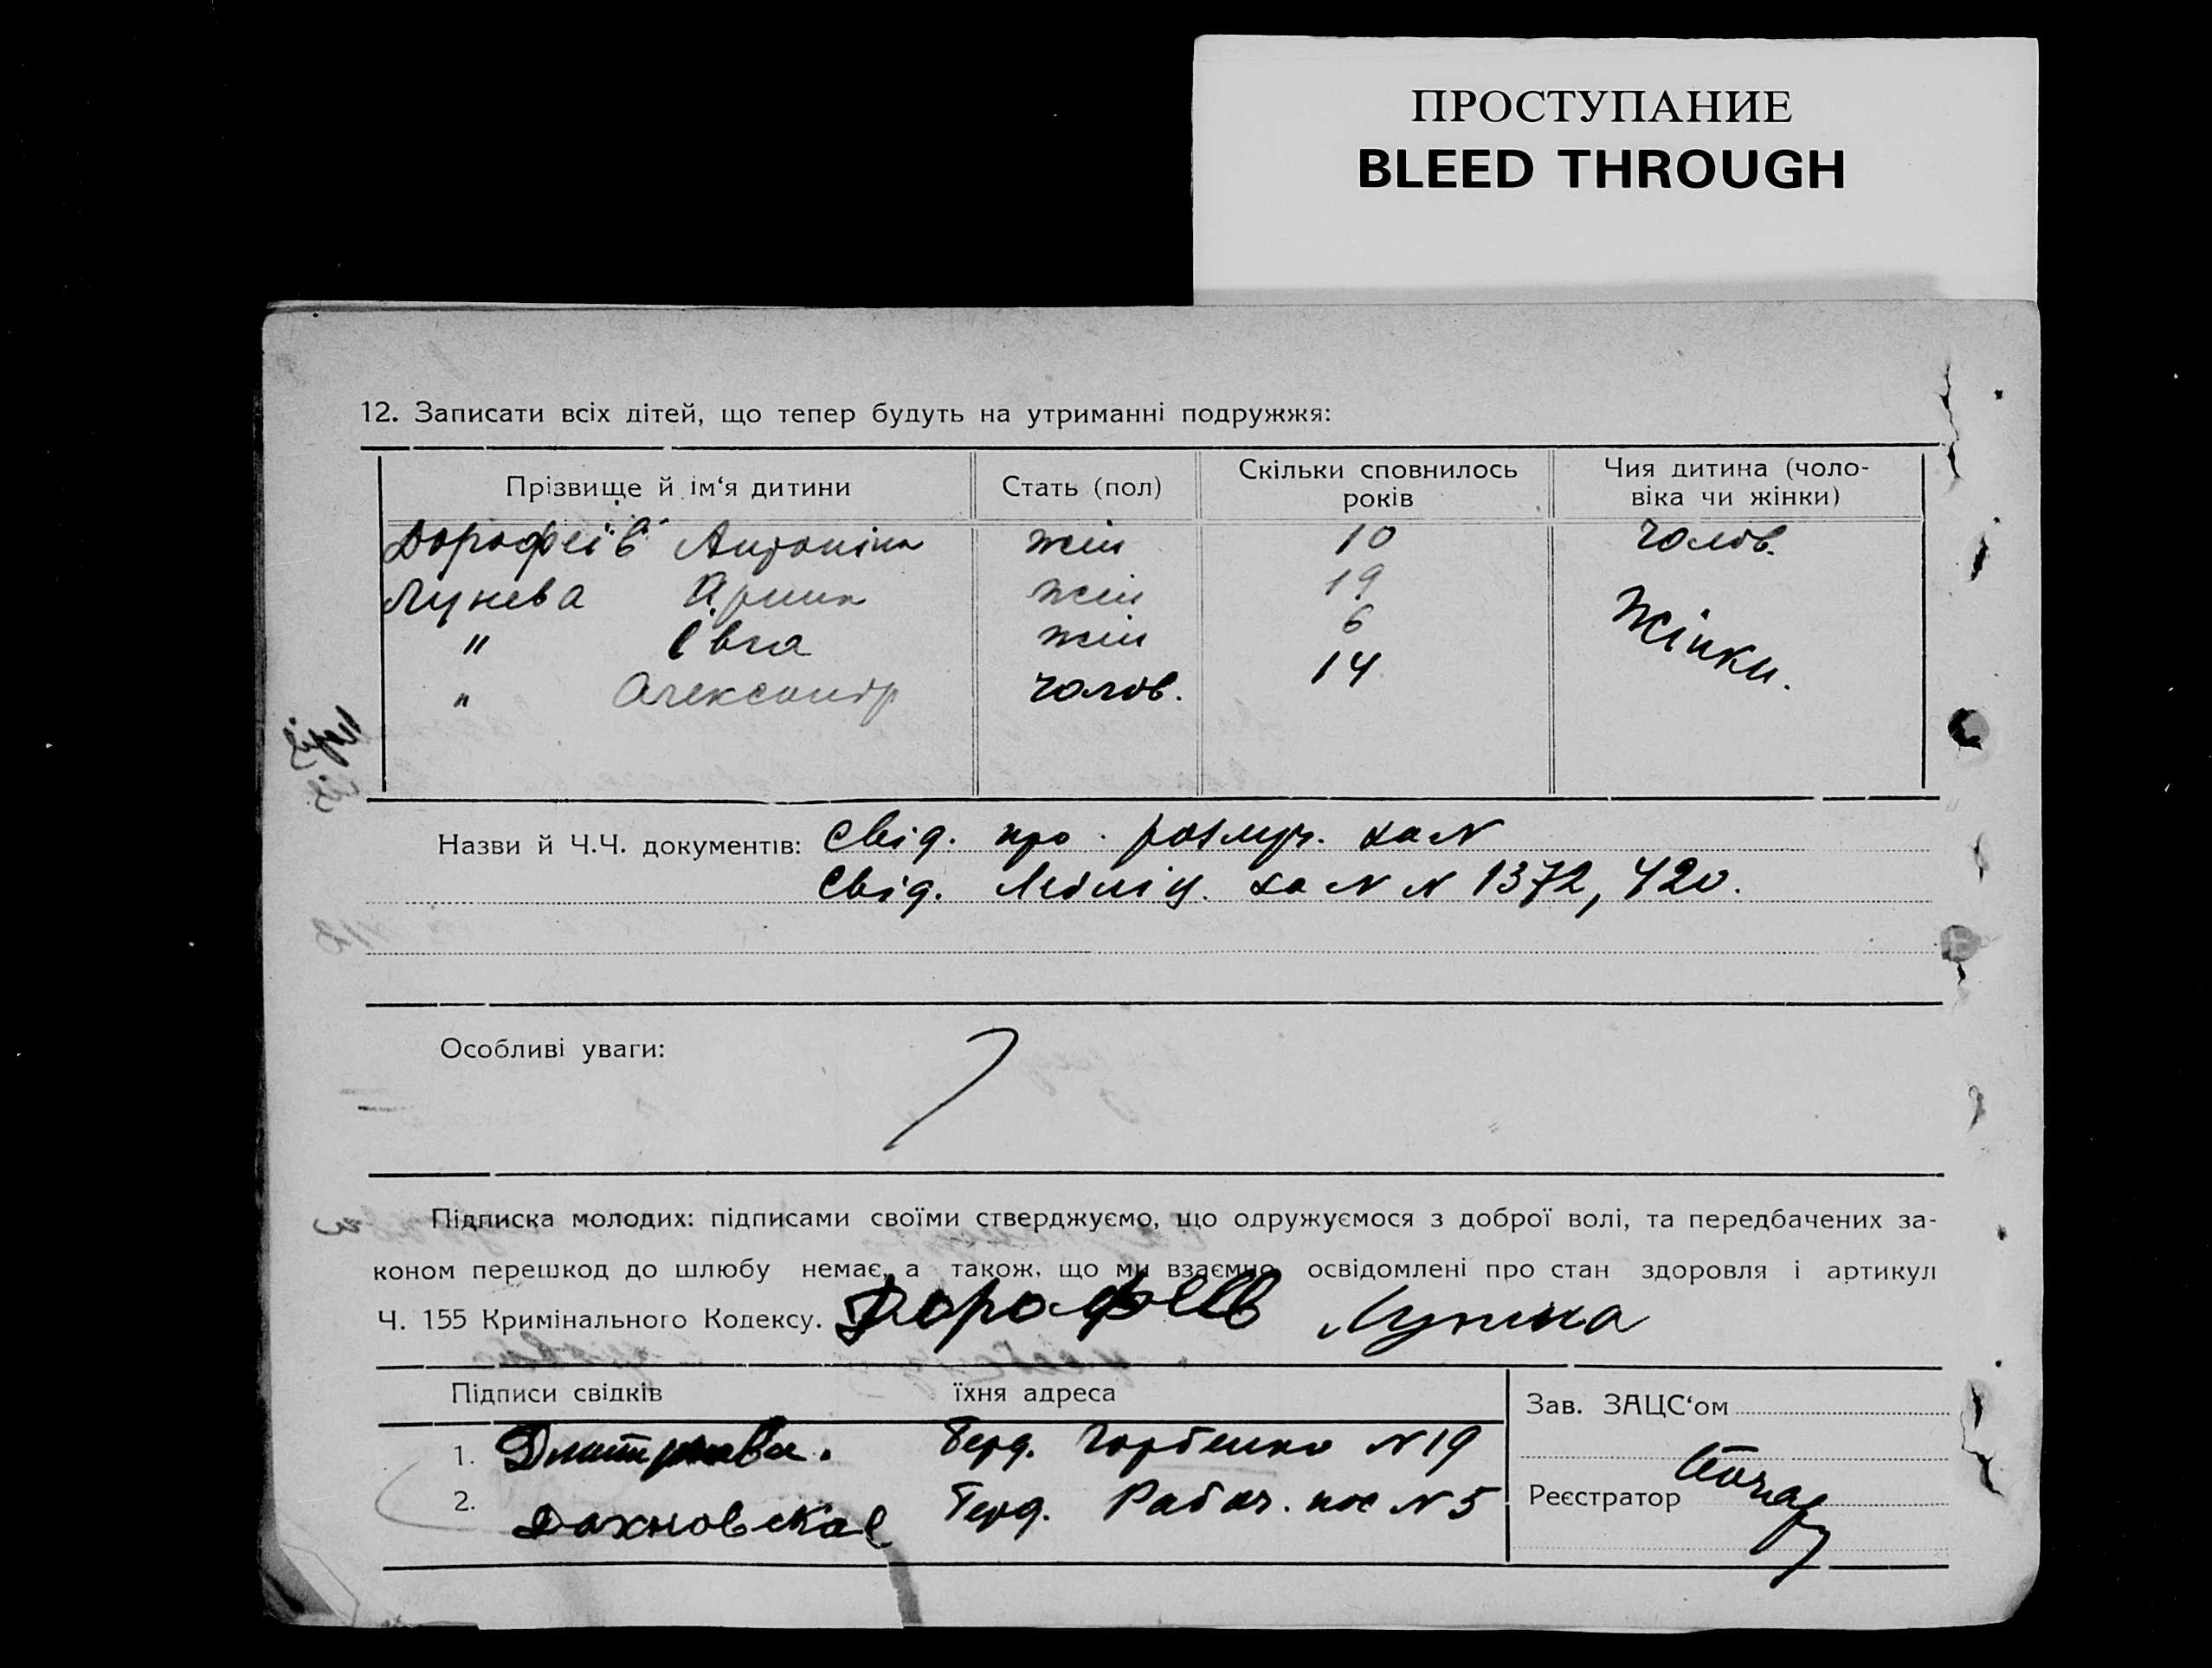 ПРОСТУПАНИЕ
BLEED THROUGH
12. Записати всіх дітей, що тепер будуть на утриманні подружжя:
Прізвище й ім‘я дитини Стать (пол) Скільки сповнилось років Чия дитина (чоловіка чи жінки)
Дорофеїв Антоніна жін 10 чолов.
Лунева Арина жін 19 Жінки.
" Євга жін 6
" Олександр чолов. 14
Назви й Ч.Ч. документів: Свід. про розлуч. за N
Свід. за N N 1372, 420.
Особливі уваги:
Підписка молодих: підписами своїми стверджуємо, що одружуємося з доброї волі, та передбачених за-
коном перешкод до шлюбу немає, а також, що ми взаємно освідомлені про стан здоровля і артикул
Ч. 155 Кримінального Кодексу. Дорофеїв Лунина
Підписи свідків їхня адреса Зав. ЗАЦС‘ом
1. Дмитриева. Берд. Горбенко N 19
2. Дахновская Берд. Рабоч. пос N 5 Реєстратор